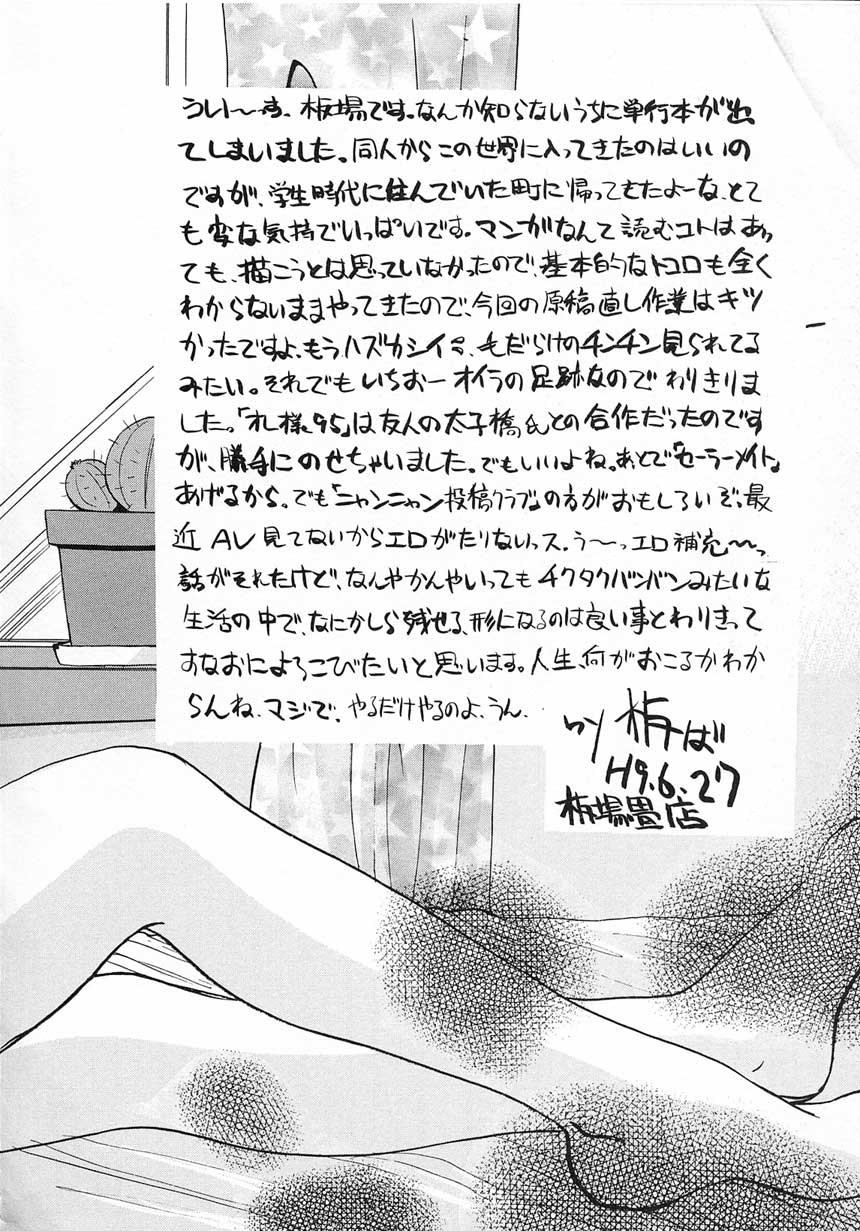 ういーす。板場です。なんか知らないうちに単行本が出
てしまいました。同人からこの世界に入ってきたのはいいの
ですが、学生時代に住んでいた町に帰ってきたよーな、とて
も変な気持でいっぱいです。マンガなんて読むコトはあっ
ても、描こうとは思っていなかったので、基本的なトコロも全く
わからないままやってきたので、今回の原稿直し作業はキツ
かったですよ、もうハズカシイ、毛だらけのチンチン見られてる
みたい。それでもいちおーオイラの足跡なのでわりきりま
した。「札様95」は友人の太子橋氏との合作だったのです
が、勝手にのせちゃいました。でもいいよね。あとで「セーラーメイト」
あげるから。でも「ニャンニャン投稿クラブ」の方がおもしろいぞっ最
近AV見てないからエロがたりないっス。う〜っエロ補充〜っ
話がそれたけど、なんやかんやいってもチクタクバンバンみたいな
生活の中で、なにかしら残せる、形になるのは良い事とわりきって
すなおによろこびたいと思います。人生、何がおこるかわか
らんね、マジで、やるだけやるのよ、うん。
by 板ば
H9.6.27
板場畳店